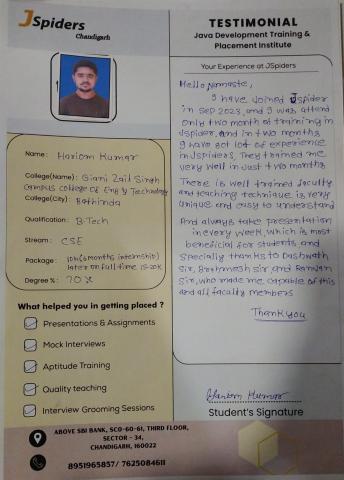 JSpiders
Chandigarh
TESTIMONIAL
Java Development Training &
Placement Institute
Your Experience at JSpiders
Hello Namaste,
I have Joined Jspider
in Sep 2023, and I was attend
only two month of training in
Jspider, and in two months
I have got lot of experience
in Jspiders, They trained me
very well in Just two months
There is well trained faculty
and teaching technique is very
unique and easy to understand
And always take presentation
in every week, which is most
beneficial for students, and
Specially thanks to Dashwath
Sir, Brahmesh sir and Ranjan
Sir, who made me capable of this
and all faculty members
Thank you
Name: Hariom Kumar
College(Name): Giani Zail Singh
Campus College of Eng & Technology
College(City): Bathinda
Qualification: B.Tech
Stream: CSE
Package: 10k (6 months internship)
later on full time
Degree %: 70%
What helped you in getting placed ?
Presentations & Assignments
Mock Interviews
Aptitude Training
Quality teaching
Interview Grooming Sessions
Hariom Kumar
Student's Signature
ABOVE SBI BANK, SCO-60-61, THIRD FLOOR,
SECTOR - 34,
CHANDIGARH, 160022
8951965857/ 7625084611